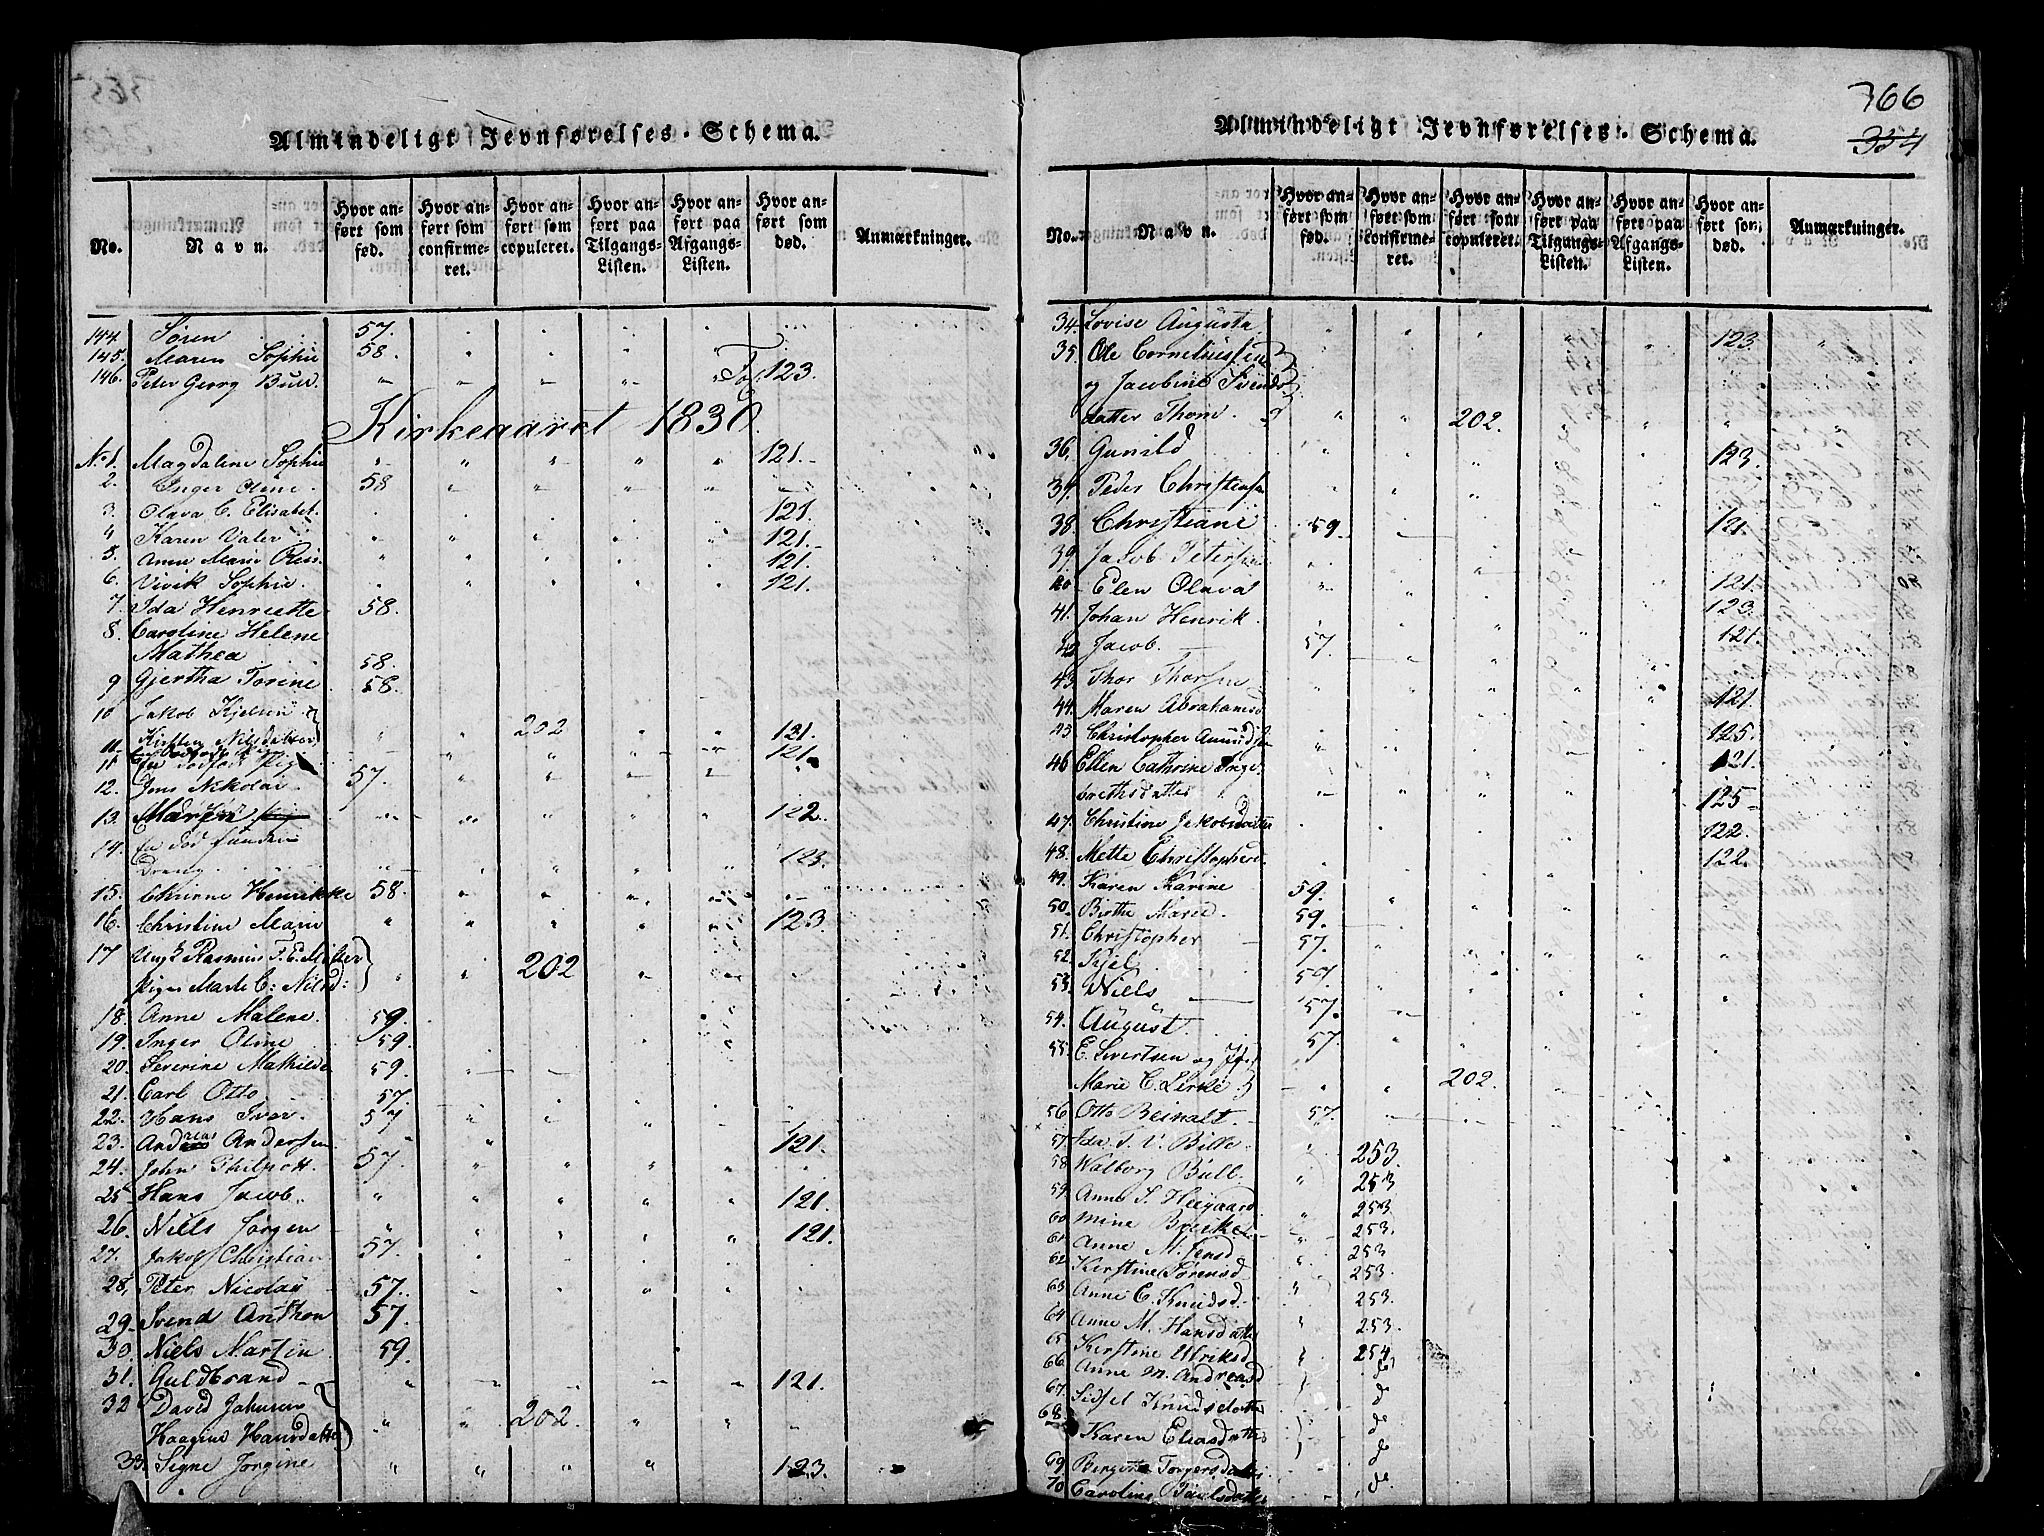 Almindeligt Jevnførelses-Schema.
No. Navn. Hvor anført som fød. Hvor anført som confirmeret. Hvor anført som copuleret. Hvor anført paa Tilgangs-Listen. Hvor anført paa Afgangs-Listen. Hvor anført som død. Anmærkninger.
144. Søren 57.
145. Maren Sophie 58.
146. Peter Georg Bull. Fol. 123.
Kirkeaaret 1830.
No 1. Magdalene Sophie 121.
2. Inger Oline. 58
3. Olava C. Elisabet. 121.
4 Karen Valer 121.
5. Anne Marie 121.
6. Vivik Sophie. 121.
7. Ida Henriette 58.
8. Caroline Helene
Mathea 58.
9 Gjertha Torine 58.
10 Jakob Kjelsen
Kirsten Nilsdatter 202 121.
11. En dødfødt Pige 121.
12. Jens Nikolai 57.
13. Maren 122.
14. En død funden
Dreng 123.
15. Henrikke 58.
16. Christine Marie 123.
17 Ungk. Rasmus T. E.
Pigen Marte C: Nilsd: 202
18. Anne Malene. 59.
19. Inger Oline 59.
20. Severine Mathilde 59.
21. Carl Otto 57.
22. Hans Ivar. 57
23. Andreas Andersen 121.
24. John Philpott. 57.
25 Hans Jacob. 121.
26. Niels Jørgen 121.
27. Jakob Christian 57.
28. Peter Nicolay 57.
29. Svend Anthon 57.
30. Niels Martin 59.
31. Guldbrand 121.
32 David Johnsen
Haagine Hansdatter 202.
33. Signe Jorgine 123.
366
354
Almindeligt Jevnførelses-Schema.
No. Navn. Hvor anført som fød. Hvor anført som confirmeret. Hvor anført som copuleret. Hvor anført paa Tilgangs-Listen. Hvor anført paa Afgangs-Listen. Hvor anført som død. Anmærkninger.
34. Lovise Augusta 123
35. Ole Corneliussen
og Jacobine Svends
datter Thom. 202.
36. Gunild 123.
37. Peder Christensen
38. Christiane 59. 121.
39. Jacob Petersen
40 Elen Olava 121.
41. Johan Henrik. 123.
42 Jacob. 57. 121.
43. Thor Thorsen
44. Maren Abrahamsd 121.
45. Christopher Amundsen 125.
46 Ellen Cathrine Inge-
brethsdatter 121.
47. Christine Jakobsdatter 125
48. Mette Christophers. 122.
122.
49. Karen Karine 59.
50. Birthe Marie. 59.
51. Christopher 57.
52. Kjel 57.
53. Niels 57.
54. August. 57.
55. E. Sivertsen og
Marie C. Lirke 202.
56 Otto Reinalt. 57.
57. Ida T. V. Bille. 253.
58 Walborg Bull. 253
59. Anne S. Heegaard 253
60 Mine 253.
61 Anne M. Jensd 253
62 Kirstine Sørensd 253.
63 Anne C. Knudsd. 253.
64 Anne M. Hansdatter 253.
65 Kirstine Ulriksd 254.
66 Anne M. Andreasd do
67. Sidsel Knudsdatter do
68. Karen Eliasdatter do
69. Bergitte Torgersdatter do
70 Caroline Poulsdatter do